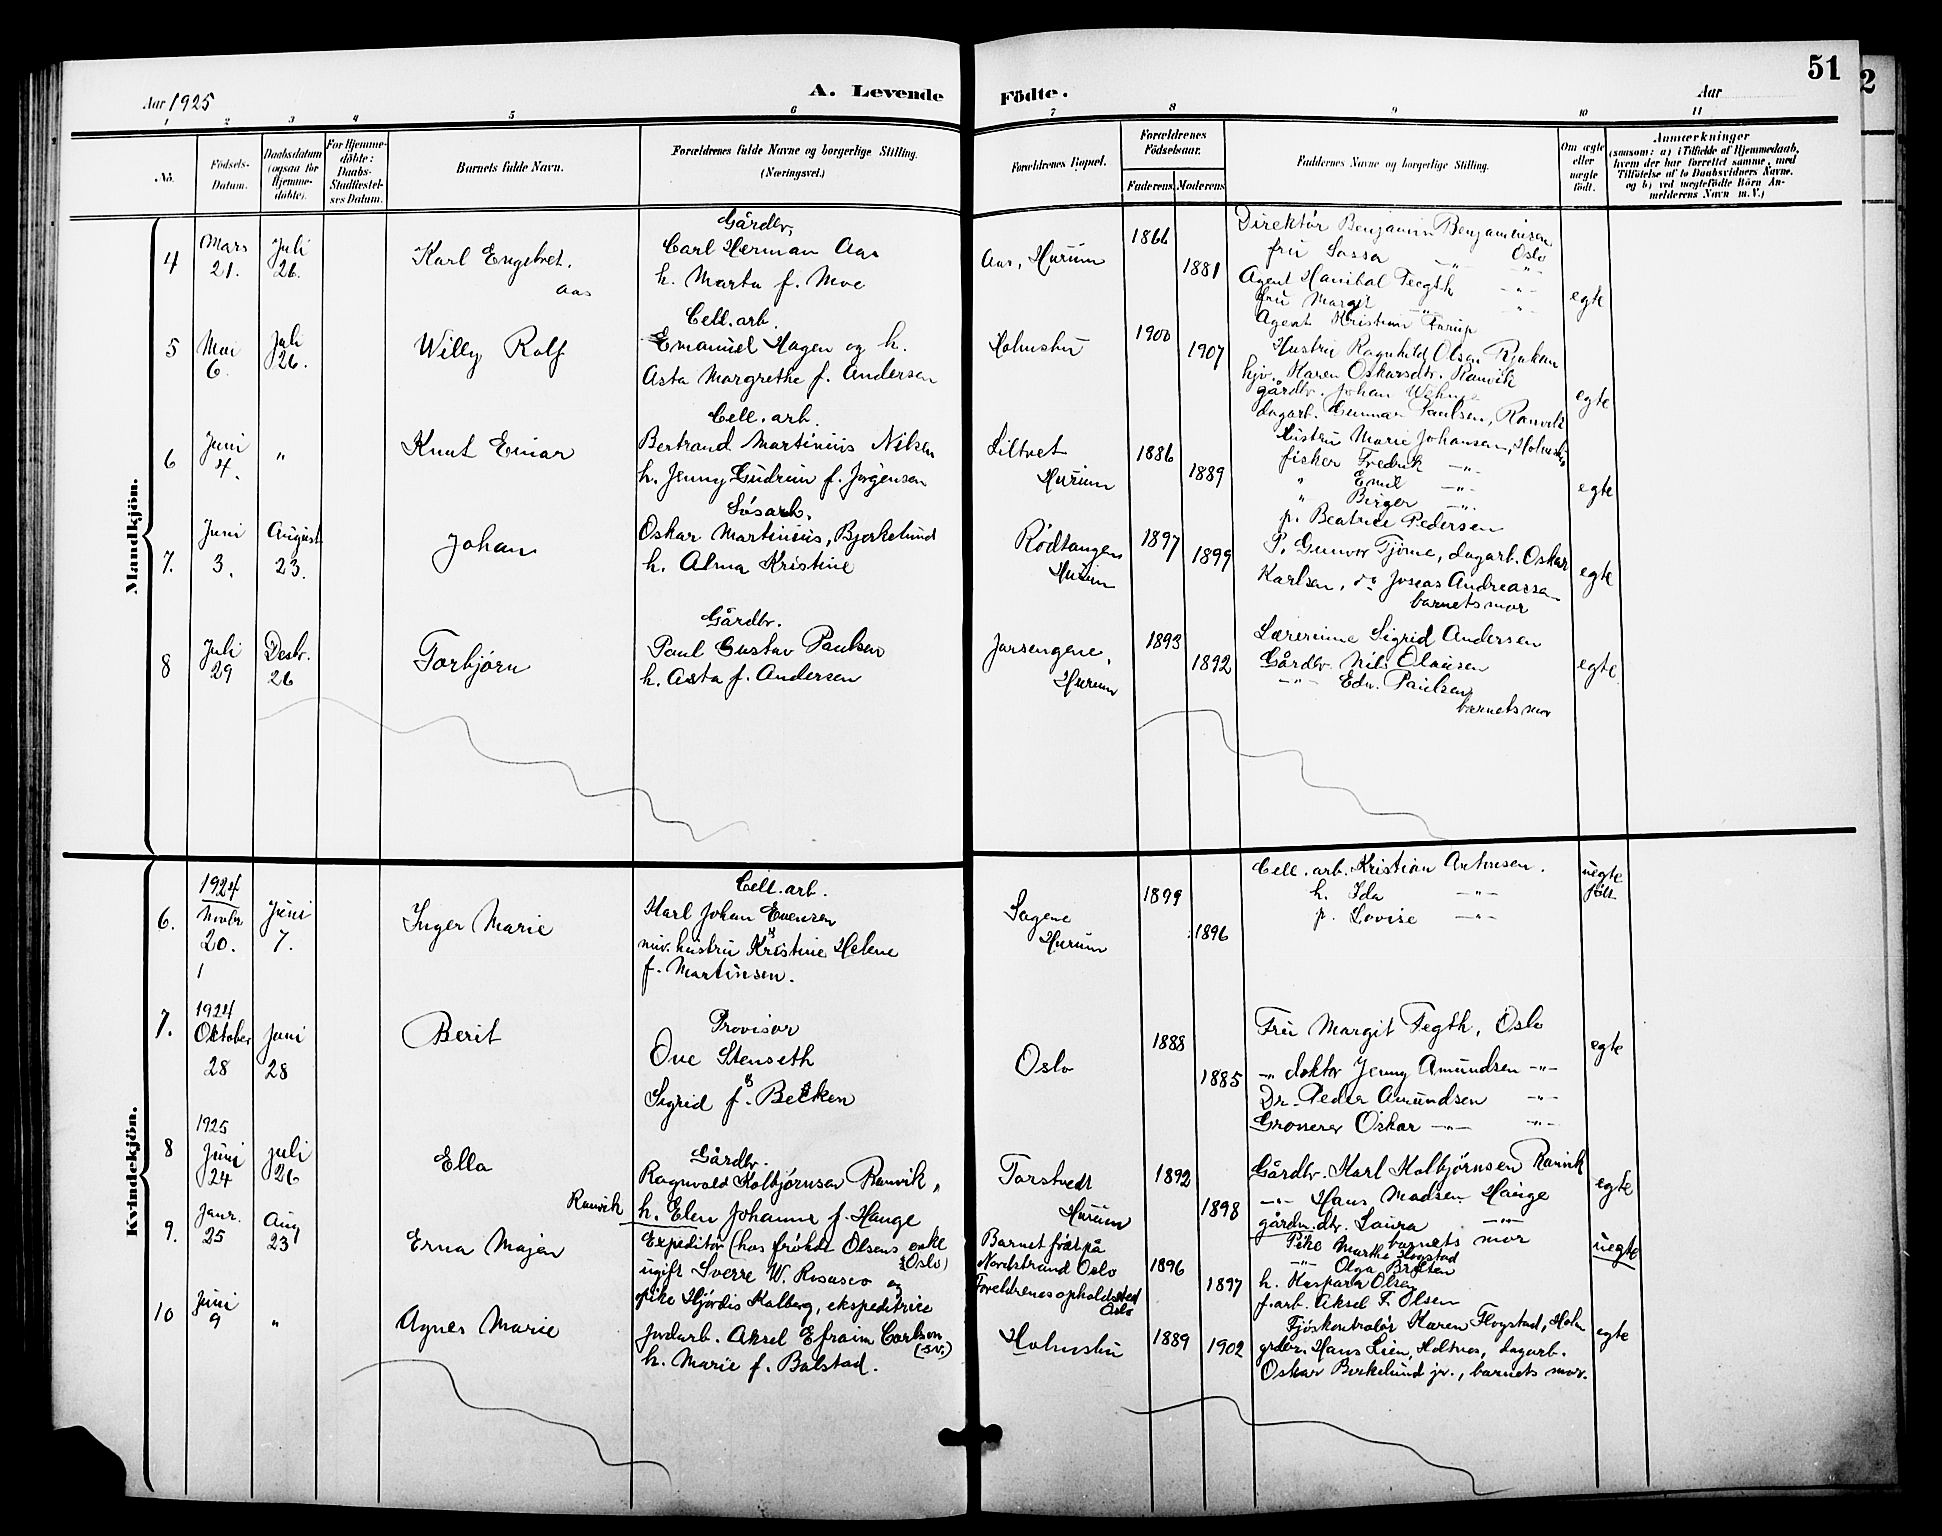 51
2
Aar 1925
A. Levende
Födte.
Aar
1 2 3 4 5 6 7 8 9 10 11
No.
Födsels-
Datum.
Daabsdatum
(ogsaa for
Hjemme-
döbte).
For Hjemme-
döbte:
Daabs-
Stadfæstel-
ses Datum.
Barnets fulde Navn.
Forældrenes fulde Navne og borgerlige Stilling.
(Næringsvei.)
Forældrenes Bopæl.
Forældrenes
Födselsaar.
Faderens.
Moderens.
Faddernes Navne og borgerlige Stilling.
Om ægte
eller
uægte
födt.
Anmærkninger
(saasom: a) i Tilfælde af Hjemmedaab,
hvem der har forrettet samme, med
Tilföielse af to Daabsvidners Navne.
og b) ved uægtefödte Börn An-
melderens Navn m. V.)
Mandkjön.
4
Mars
21.
Juli
26.
Karl Engebret.
Aas
Gårdbr.
Carl Herman Aas
h. Marta f. Moe
Aas, Hurum
1866
1881
Direktør Benjamin Benjaminsen
fru Sassa -"- Oslo
Agent Hanibal Fegth -"-
fru Margit -"- -"-
Agent Kristian
egte
5
Mai
6.
Juli
26.
Willy Rolf
Cell. arb.
Emanuel Hagen og h.
Asta Margrethe f. Andersen
Holmsbu
1900
1907
Hustru Ragnhild Olsen Rjukan
hjv. Karen Oskarsdtr. Ranvik
gårdbr. Johan
dagarb. Gunnar Paulsen, Ranvik
egte
6
Juni
4.
"
Knut Einar
Cell. arb.
Bertrand Martinius Nilsen
h. Jenny Gudrun f. Jørgensen
Siltvet
Hurum
1886
1889
Hustru Marie Johansen, Holmsbu
fisker Fredrik -"-
" Emil -"-
" Birger -"-
p. Beatrice Pedersen
egte
7.
Juni
3.
August
23.
Johan
Oskar Martinius, Bjerkelund
h. Alma Kristine
Rødtangen
Hurum
1897
1899
P. Gunvor Tjørne, dagarb. Oskar
Karlsen, do Joseas Andreassen
barnets mor
egte
8
Juli
29
Desbr.
26
Torbjørn
Gårdbr.
Paul Gustav Paulsen
h. Asta f. Andersen
Jarsengene,
Hurum
1893
1892
Lærerinne Sigrid Andersen
Gårdbr. Nils Olausen
-"- Edv. Paulsen
barnets mor
egte
Kvindekjön.
6.
1924
Novbr
20.
Juni
7.
Inger Marie
Cell. arb.
Karl Johan Evensen
&
niv. hustru Kristine Helene
f. Martinsen.
Sagene
Hurum
1899
1896
Cell. arb. Kristian Antonsen.
h. Ida -"-
p. Lovise -"-
uegte
født
7.
1924
Oktober
28
Juni
28
Berit
Provisor
Ove Stenseth
&
Sigrid f. Betken
Oslo
1888
1885
Fru Margit Fegth, Oslo
-"- doktor Jenny Amundsen -"-
Dr. Peder Amundsen -"-
Grosserer Oskar -"- -"-
egte
8
1925
Juni
24
juli
26
Ella
Ranvik
Gårdbr.
Ragnvald Kolbjørnsen Ranvik,
h. Elen Johanne f. Hauge
Torstvedt
Hurum
1892
1898
Gårdbr. Karl Kolbjørnsen Ranvik
-"- Hans Madsen Hauge
gårdm. dtr. Laura -"-
barnets mor
egte
9.
Janr.
25
Aug
23
Erna Majen
Expeditør (hos frøhdl. Olsens enke
Oslo)
ugift Sverre W. og
pike Hjørdis Kalberg, ekspeditrice
Barnet født på
Nordstrand Oslo
Foreldrenes opholdssted
Oslo
1896
1897
Pike Marthe Flogstad
-"- Olga Bråten
h. Kaspara Olsen
f.arb. Aksel F. Olsen
uegte
10
Juni
9
"
Agnes Marie
Jordarb. Aksel Efraim Carlson
(sv.)
h. Marie f. Bålstad.
Holmsbu
1889
1902
Fjøskontrolør Karen Flogstad, Holm
grdbr. Hans Lien, Holtnes, dagarb.
Oskar Berkelund jr., barnets mor.
egte